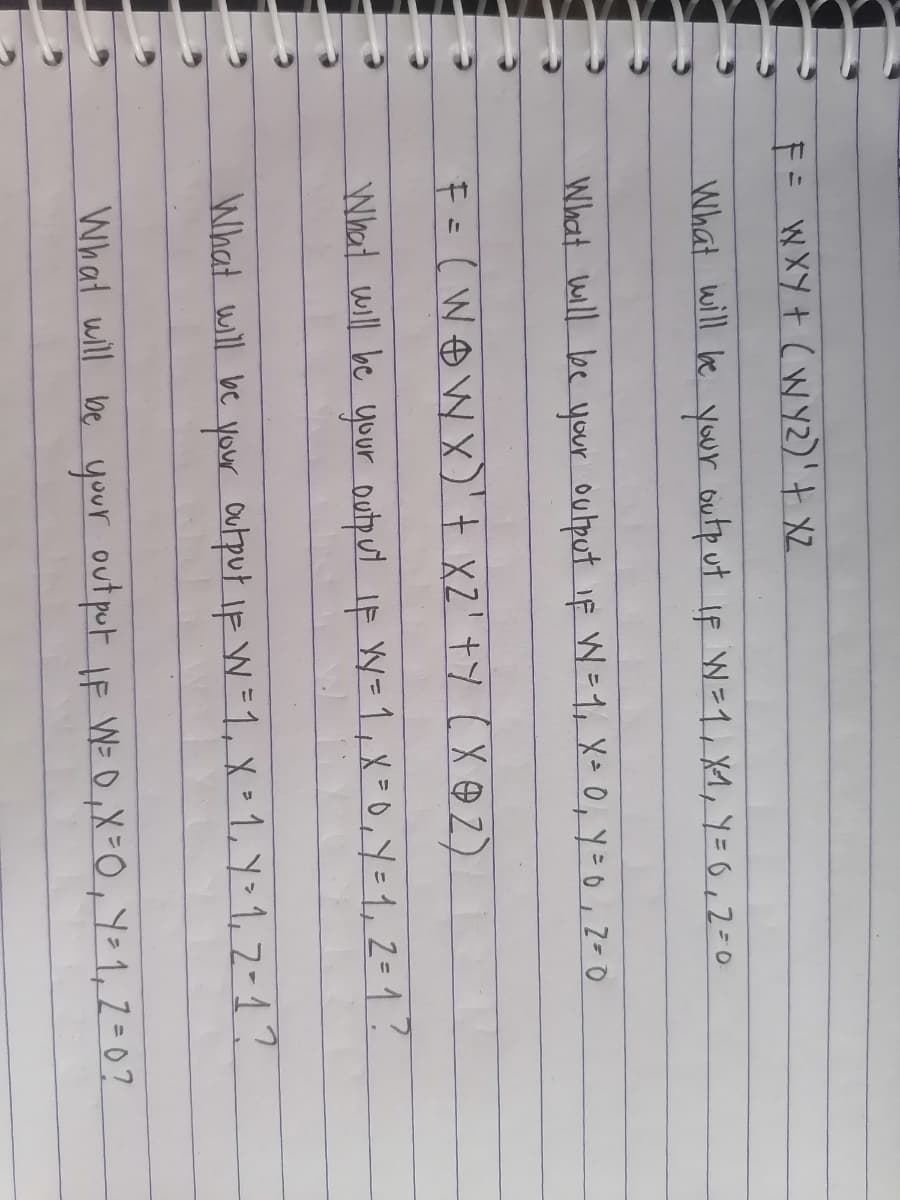 F = WXY + (WYZ)' + XZ
What will be your output IF W=1, X=1, Y=0, Z=0
What will be your output IF W=1, X=0, Y=0, Z=0
F = (W ⊕ WX)' + XZ' + Y (X ⊕ Z)
What will be your output IF W=1, X=0, Y=1, Z=1?
What will be your output IF W=1, X=1, Y=1, Z=1?
What will be your output IF W=0, X=0, Y=1, Z=0?